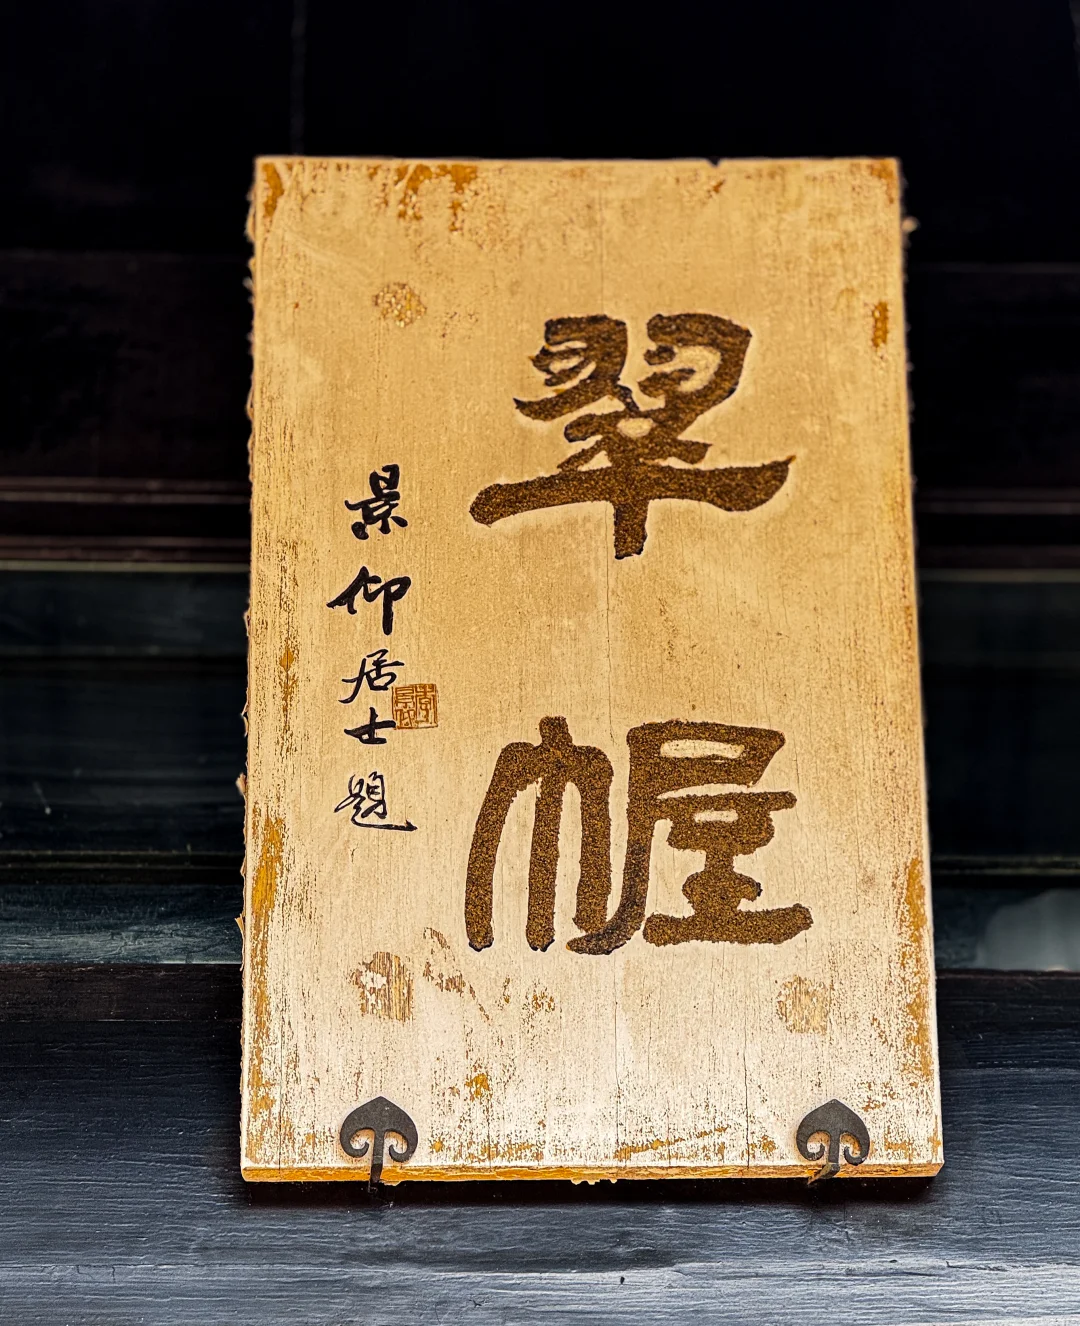 翠幄
景仰居士題